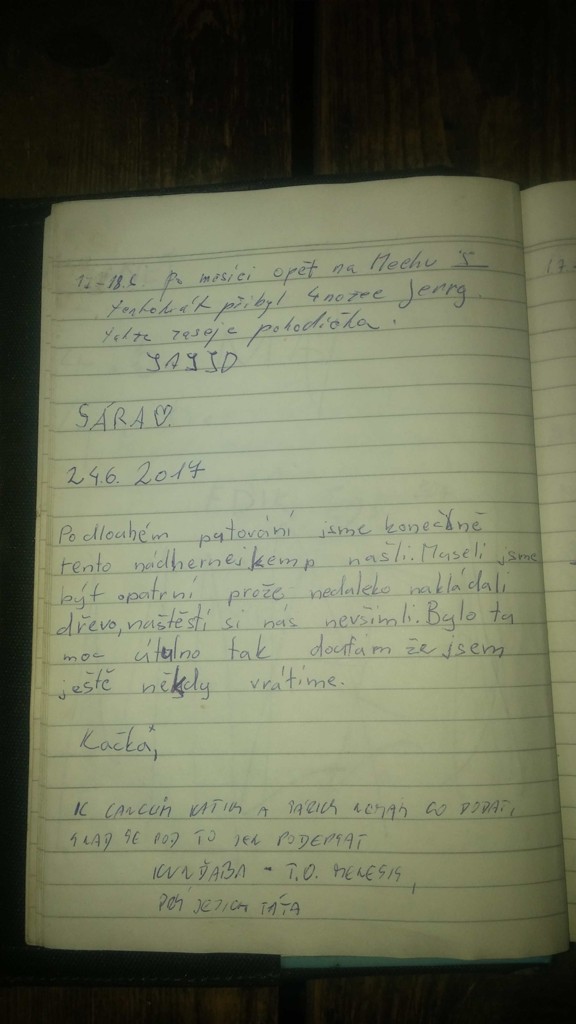 17-18.6. Po měsíci opět na Mechu 5
tentokrát přibyl 4nožec Jerry.
takže zase je pohodička.
SÁRA ♡.
24.6. 2017
Po dlouhém patování jsme konečně
tento nádhernej kemp našli. Museli jsme
být opatrní prože nedaleko nakládali
dřevo, naštěstí si nás nevšimli. Bylo tu
moc útulno tak doufám že jsem
ještě někdy vrátíme.
Kačka,
K A NEMÁM CO DODAT,
SNAD SE POD TO JEN PODEPSAT
- T.O.
JEJICH TÁTA